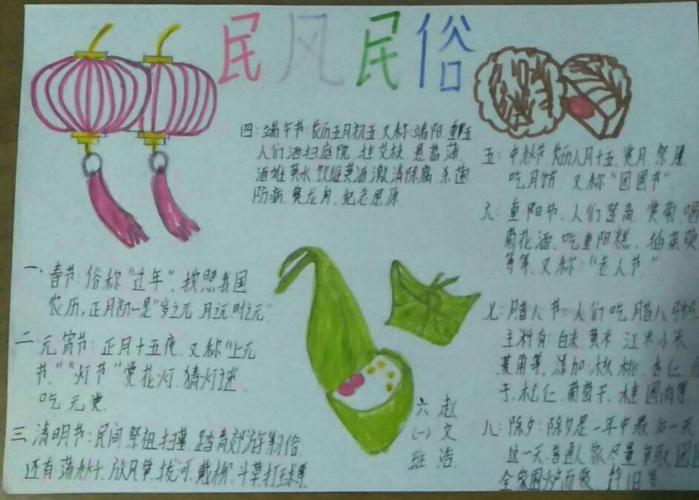 民风民俗
一、春节：俗称“过年”，按照我国
农历，正月初一是“岁之元，月之元，时之元”
二、元宵节：正月十五夜，又称“上元
节，”“灯节”赏花灯，猜灯谜，
吃元宵
三、清明节：民间祭祖扫墓，踏青郊游等习俗
还有荡秋千，放风筝，拔河，戴柳，斗草打球等
四：端午节：农历五月初五，又称：端阳、重五
人们洒扫庭院，挂艾枝，悬菖蒲，
洒雄黄水，饮雄黄酒，激清除腐，杀菌
防病，赛龙舟，纪念屈原
五：中秋节，农历八月十五，赏月，祭月
吃月饼，又称“团圆节”
六：重阳节，人们登高，赏菊，喝
菊花酒，吃重阳糕，插茱萸
等等，又称：“老人节”
七：腊八节：人们吃腊八
主料有：白米，黄米，江米，小米
菱角等，添加：核桃，杏仁，
子，松仁，葡萄干，桂圆肉等
八：除夕：除夕是一年中最后一天
这一天，普通人家尽量争取团
全家围炉而
六(一)班
赵文浩